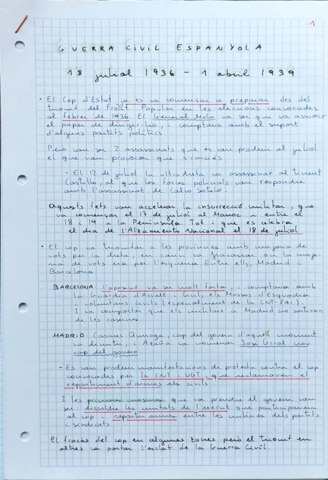 1
GUERRA CIVIL ESPANYOLA
18 juliol 1936 - 1 abril 1939
• El Cop d'Estat ja es va començar a preparar des del
triomf del Front Popular en les eleccions convocades
al febrer de 1936. El General Mola va ser qui va assumir
el paper de dirigir-ho, i comptava amb el suport
d'alguns partits polítics.
Però van ser 2 assassinats que es van podem al juliol
el que van provocar que s'iniciés
- El 12 de juliol la ultradreta va assassinar al tinent
Castillo, al que les forces policials van respondre
amb l'assassinat de Calvo Sotelo.
Aquests fets van accelerar la insurrecció militar, que
va començar el 17 de juliol al Marroc i entre el
18 i 19 a la Península. Tot i que es celebra
el dia de l'Alzamiento Nacional el 18 de juliol
• El cop va triomfar a les províncies amb majoria de
vots per la dreta, en canvi va fracassar on la majo-
ria de vots era per l'esquerra. Entre ells, Madrid i
Barcelona
BARCELONA: L'oposició va ser molt forta, comptava amb
la Guàrdia d'Assalt i Civil, els Mossos d'Esquadra
i voluntaris civils (especialment de la CNT-FAI)
I va comportar que els militars a Madrid no sortissin
de les casernes
MADRID: Casares Quiroga, cap del govern d'aquell moment
va dimitir, i Azaña va nomenar José Giral nou
cap del govern
- Es van podem manifestacions de protesta contra el cop
convocades per la CNT i UGT, que reclamaven el
repartiment d'armes als civils
I les primeres mesures que va prendre el govern van
ser dissoldre les unitats de l'exèrcit que participaven
al cop i repartir armes entre les milícies dels partits
i sindicats
El fracàs del cop en algunes zones però el triomf en
altres va portar l'esclat de la Guerra Civil.